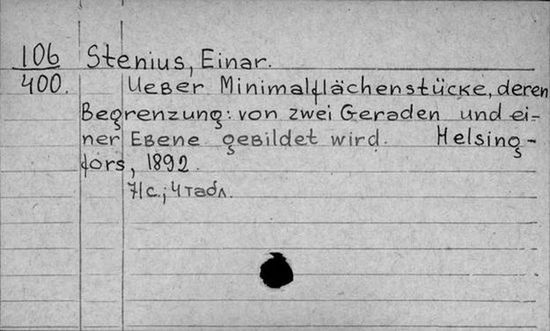 106 Stenius, Einar.
400. Ueber Minimalflächenstücke, deren
Begrenzung: von zwei Geraden und ei-
ner Ebene gebildet wird. Helsing-
fors, 1892.
71 с.; 4 табл.